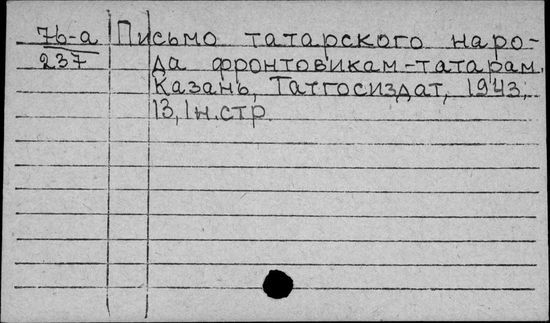 7б-а Письмо татарского наро-
237 да фронтовикам-татарам.
Казань, Татгосиздат, 1943.
13, 1 н. стр.